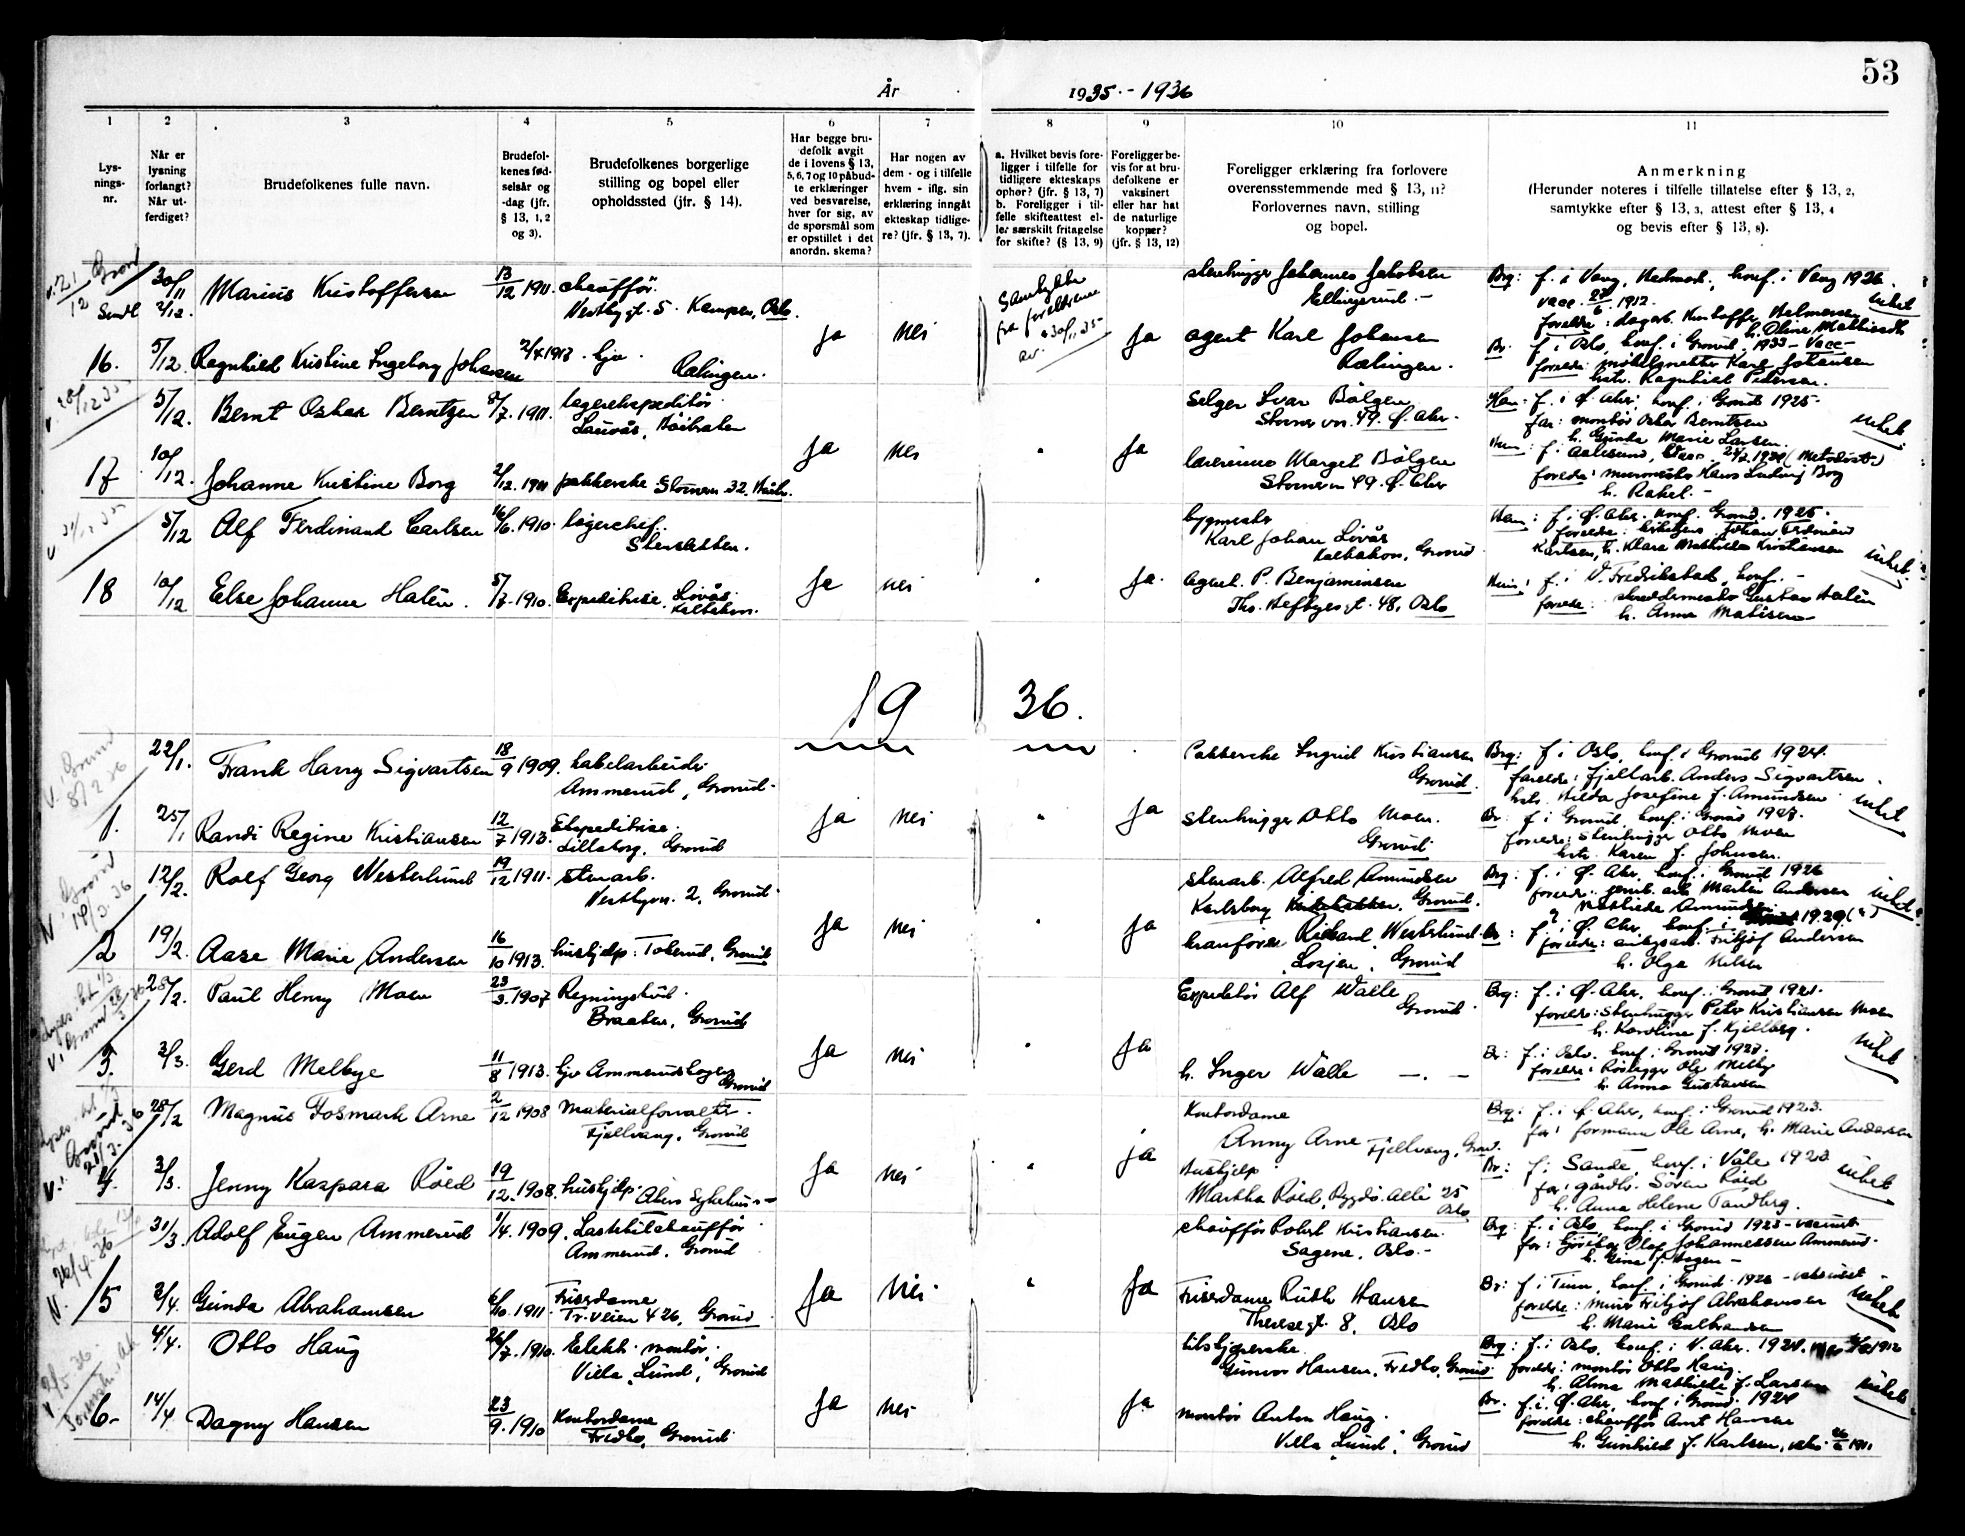 53
År 1935 - 1936
1 2 3 4 5 6 7 8 9 10 11
Lysningsnr.
Når er lysning forlangt? Når utferdiget?
Brudefolkenes fulle navn.
Brudefolkenes fødselsår og -dag (jfr. § 13, 1, 2 og 3).
Brudefolkenes borgerlige stilling og bopel eller opholdssted (jfr. § 14).
Har begge brudefolk avgit de i lovens § 13, 5, 6, 7 og 10 påbudte erklæringer ved besvarelse, hver for sig, av de spørsmål som er opstillet i det anordn. skema?
Har nogen av dem - og i tilfelle hvem - iflg. sin erklæring inngåt ekteskap tidligere? (jfr. § 13, 7).
a. Hvilket bevis foreligger i tilfelle for tidligere ekteskaps ophør? (jfr. § 13, 7) b. Foreligger i tilfelle skifteattest eller særskilt fritagelse for skifte? (§ 13, 9)
Foreligger bevis for at brudefolkene er vaksinert eller har hat de naturlige kopper? (jfr. § 13, 12)
Foreligger erklæring fra forlovere overensstemmende med § 13, 11? Forlovernes navn, stilling og bopel.
Anmerkning (Herunder noteres i tilfelle tillatelse efter § 13, 2, samtykke efter § 13, 3, attest efter § 13, 4 og bevis efter § 13, 8).
30/11 Marius Kristoffersen 13/12 1911. chauffør.
2/12. Vestbygt. 5 Kampen, Oslo.
stenhugger Johannes Jakobsen
Ellingsrud. -
Brg: f. i Vang, Hedmark, konf. i Vang 1926.
vacc. 1912.
Samtykke fra foreldrene
Ja nei Ja
16. 5/12. Ragnhild Kristine Ingeborg Johansen 2/4 1918. hjv. Rælingen.
agent Karl Johansen
Rælingen.
Br. f. i Oslo, konf. i Grorud 1933 - vacc -
forelde: møbelsnekker Karl Johansen
hstr. Ragnhild Pedersen.
5/12. Bernt Oskar Berntzen 8/7. 1911. lagerekspeditør
Lauvås, Høibraten
selger Ivar Bølgen
Storner vn. 49. Ø. Aker.
Han: f. i Ø. Aker, konf. i Grorud 1925
far: montør Oskar Berntsen
h. Gunda Marie Larsen. intet
Ja nei " Ja
17 10/12. Johanne Kristine Borg 2/12. 1911 pakkerske
lærerinne Margit Bølgen
forelde: murmester Hans Ludvig Borg
h. Rakel. -
5/12 Alf Ferdinand Carlsen 16/6. 1910. lagerchef.
Stensletten.
bygmester
Karl Johan Løvås
Kalbakken, Grorud
Han: f. i Ø. Aker. konf. Grorud. 1925.
Karlsen, h. Klara Mathilde Kristiansen intet.
Ja nei " Ja.
18 10/12 Else Johanne Halén. 5/7. 1910. Expeditrise. Løvås. Kalbakken.
agent. P. Benjaminsen
Ths. Heftyesgt. 48, Oslo
f. i V. Fredrikstad, konf. -
forelde: skreddermester Gustav Halén
h. Anna Matisen
1936.
22/1. Frank Harry Sigvartsen 18/9 1909. kabelarbeider
Ammerud, Grorud.
Pakkerske Ingrid Kristiansen
Grorud.
Brg: f. i Oslo, konf. i Grorud 1924.
forelde: fjellarb. Anders Sigvartsen.
hstr. Hilda Josefine f. Amundsen intet
Ja nei " Ja
1. 25/1 Randi Regine Kristiansen 12/7 1913. Ekspeditrise.
Lilleborg, Grorud
stenhugger Otto Moen.
Grorud.
Br. f. i Grorud, konf. i Grorud 1928.
forelde: stenhugger Otto Moen
hstr. Karen f. Johnsen.
12/2. Rolf Georg Westerlund 19/12 1911. stenarb.
Vestbyvn. 2, Grorud
stenarb. Alfred Amundsen
Karlsborg, Grorud.
Brg: f. i Ø. Aker, konf. i Grorud 1926
Mathilde Amundsen intet
Ja nei " Ja
2 19/2. Aase Marie Andersen 16/10 1913. hushjelp. Tokerud, Grorud
kranfører Rickard Westerlund
Losjen, Grorud
Br: f. i Ø. Aker, konf. i 1929 (?)
forelde: Fritjof Andersen
h. Olga Nilsen
28/2. Paul Henry Moen 23/3. 1907 Regningsbud.
Braaten, Grorud
Expeditør Alf Walle
Grorud.
Brg: f. i Ø. Aker, konf. i Grorud 1921.
forelde: Stenhugger Peter Kristiansen Moen
h. Karoline f. Kjellberg.
Ja nei " Ja intet
3. 3/3. Gerd Melbye 11/8 1913. hjv Ammerudskogen Grorud
h. Inger Walle - . -
Br: f. i Oslo. konf. i Grorud 1928.
forelde: Rørlegger Ole Melby
h. Anna Gustavsen
28/2 Magnus Fosmark Arne 2/12 1908 Materialforvalter.
Fjellvang, Grorud
Kontordame
Anny Arne Fjellvang, Grorud.
Brg: f. i Ø. Aker, konf. i Grorud 1923.
far: formann Ole Arne, h. Marie Andersen
Ja nei " Ja
4. 3/3. Jenny Kaspara Röed 19/12. 1908. hushjelp. Akers Sykehus
Hushjelp
Martha Röed, Bygdø Allé 25 Oslo
Br: f. i Sande, konf. i Våle 1923 intet
far: gårdbr. Søren Röed
h. Anna Helene Tandberg.
31/3. Adolf Eugen Ammerud 1/4. 1909. Lastebilchauffør
Ammerud, Grorud
chauffør Robert Kristiansen.
Sagene, Oslo. -
Brg: f. i Oslo, konf. i Grorud 1923 - vaccinert
Olaf Johannessen Ammerud.
h. Gina f. Hagen -
Ja nei " Ja
5 2/4. Gunda Abrahamsen 6/10. 1911. Friserdame
Tr. veien 426, Grorud.
Friserdame Ruth Hansen
Theresegt. 8, Oslo
Br: f. i Tinn, konf. i Grorud. 1926 intet
forelde: murer Fritjof Abrahamsen
h. Marie Gulbrandsen
4/4. Otto Haug 26/7. 1910. Elektr. montør.
Villa "Lund", Grorud
tilskjærerske
Gunvor Hansen, Fredbo, Grorud
Brg: f. i Oslo, konf. i V. Aker. 1924.
forelde: montør Otto Haug.
h. Alma Mathilde f. Larsen intet
Ja nei Ja
6- 14/4. Dagny Hansen 23/9. 1910 Kontordame
Fredbo, Grorud
montør Anton Haug.
Villa "Lund", Grorud
Br. f. i Ø. Aker, konf. i Grorud. 1924
forelde: chauffør Arnt Hansen
h. Gunhild f. Karlsen,